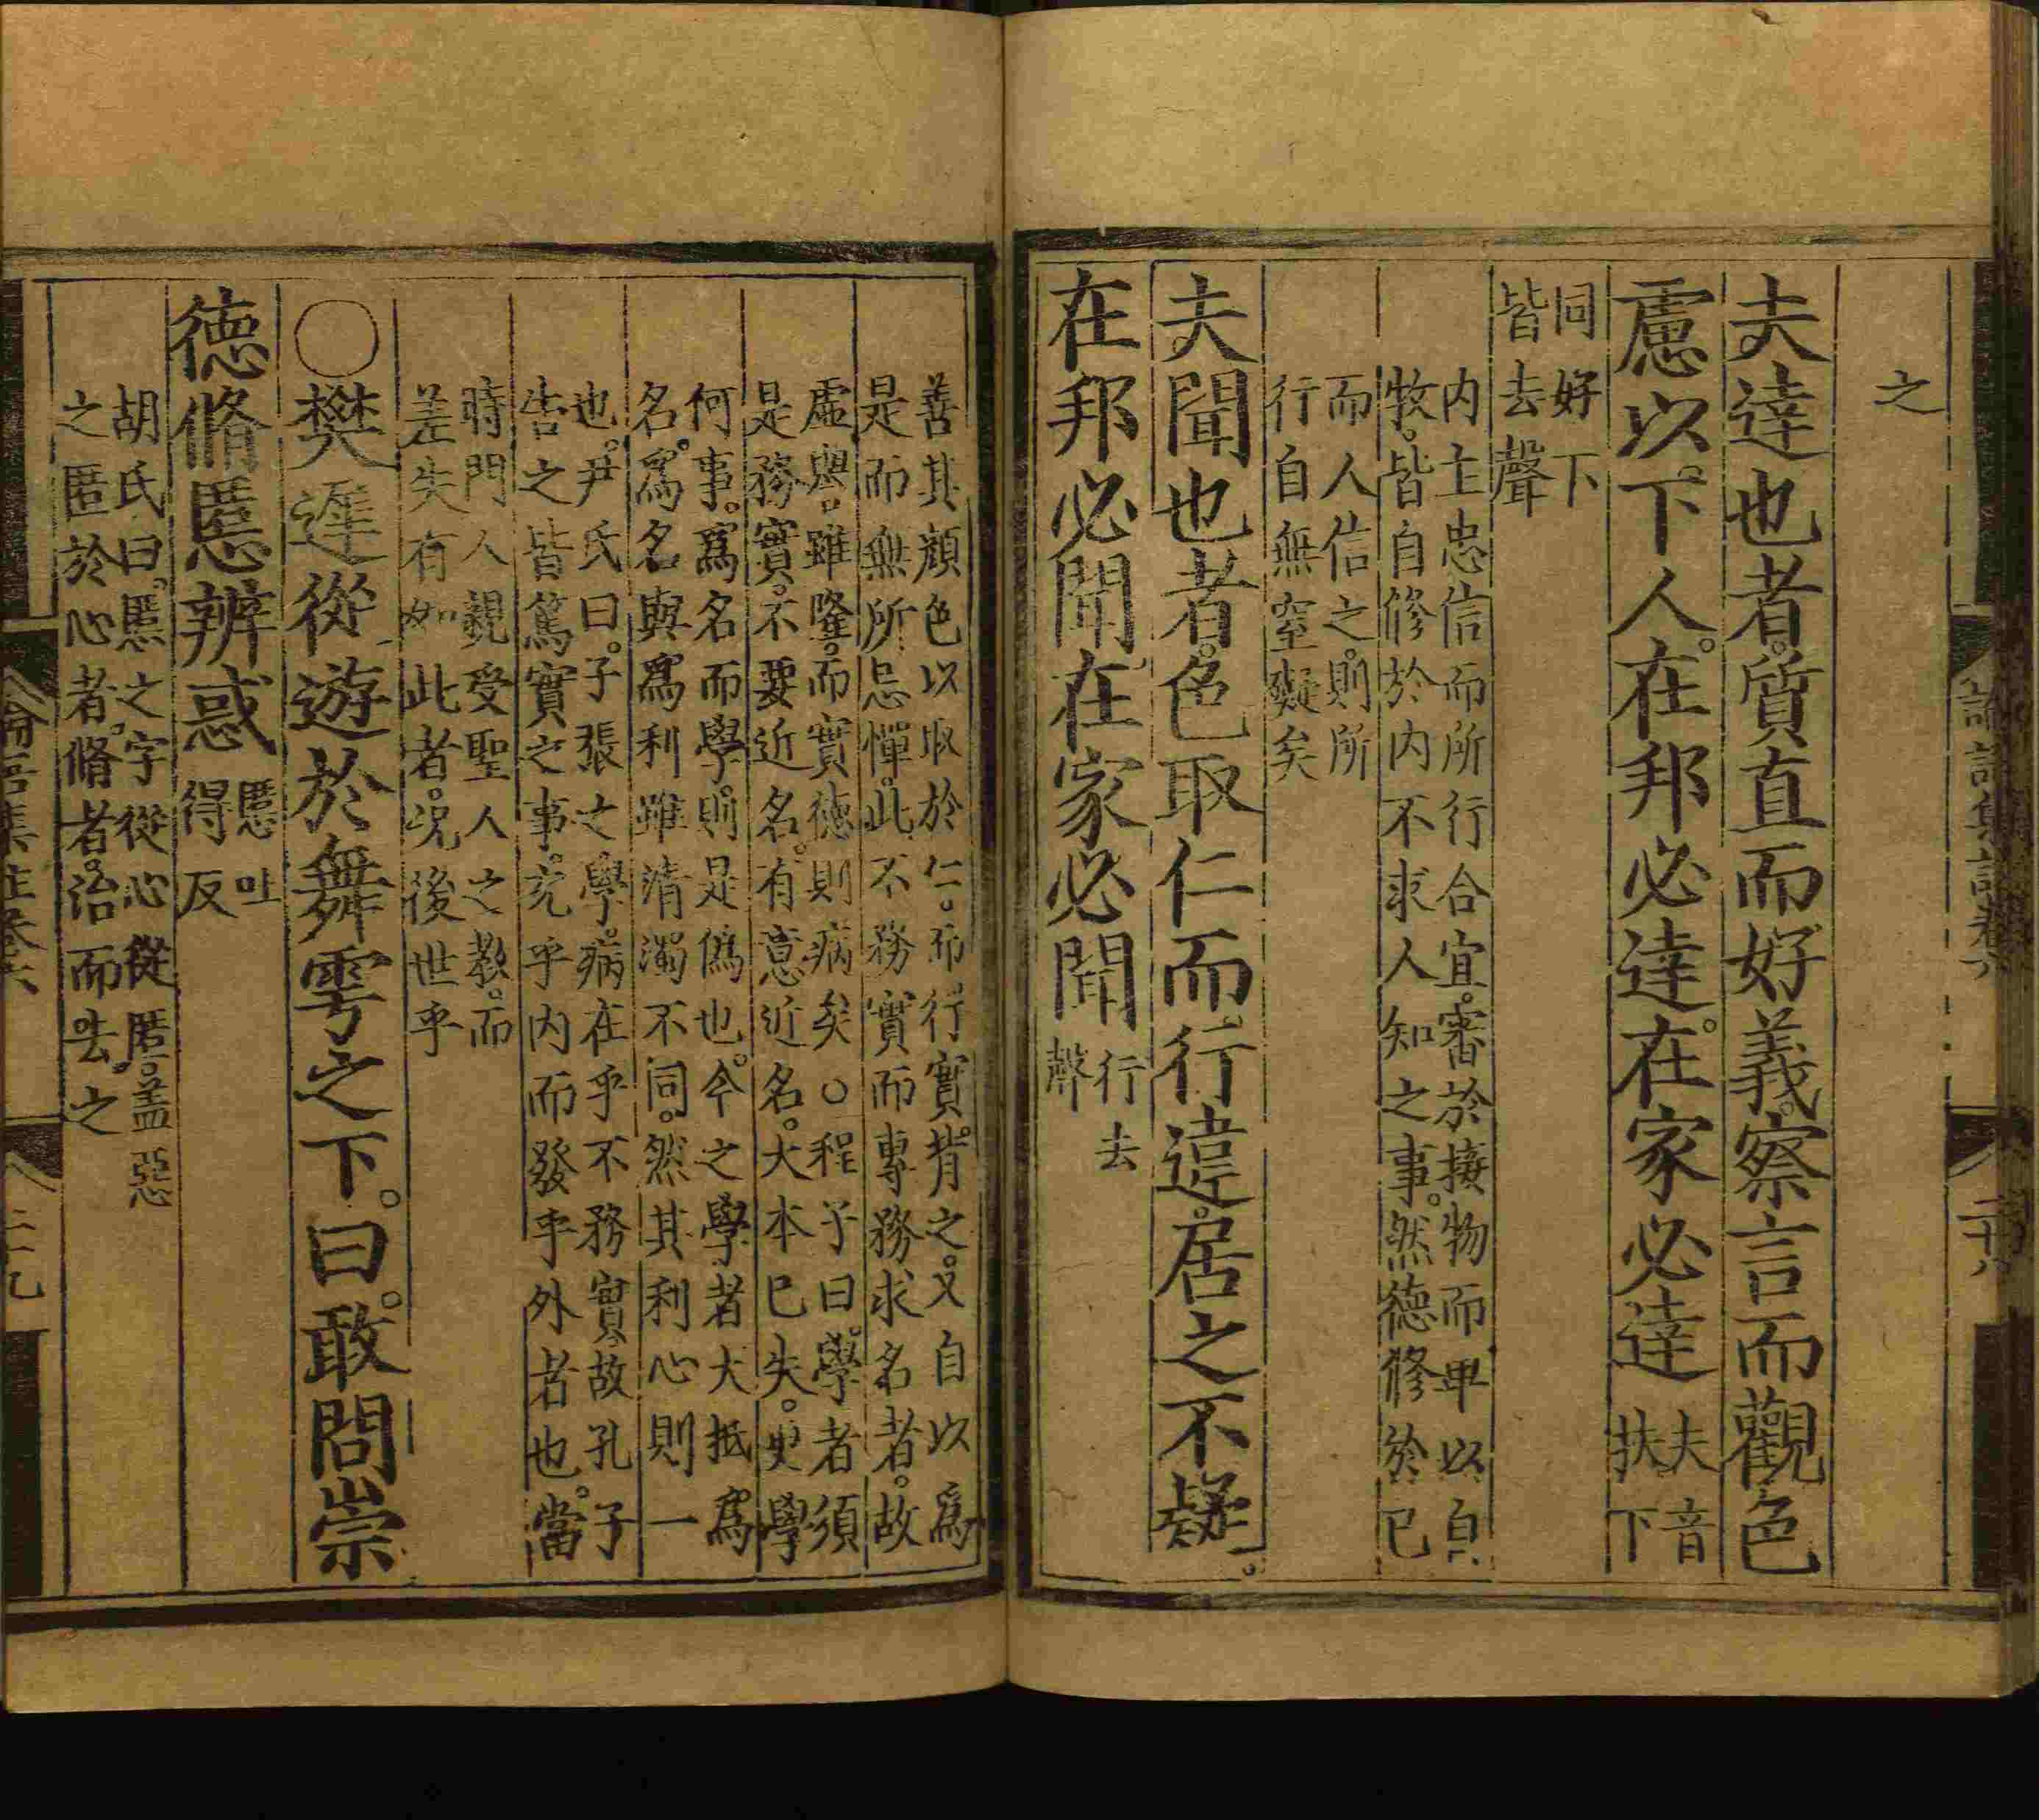 之
夫達也者。質直而好義。察言而觀色
慮以下人。在邦必達。在家必達
夫音
扶下
同好下
皆去聲
內主忠信而所行合宜。審於接物而卑以自
牧。皆自修於內不求人知之事。然德修於己
而人信之。則所
行自無窒礙矣
夫聞也者。色取仁而行違。居之不疑。
在邦必聞在家必聞
行去
聲
善其顏色以取於仁。而行實背之。又自以爲
是而無所忌憚。此不務實而專務求名者。故
虛譽雖隆。而實德則病矣○程子曰。學者須
是務實。不要近名。有意近名。大本已失。更學
何事。爲名而學。則是僞也。今之學者大抵爲
名。爲名與爲利雖清濁不同。然其利心則一
也。尹氏曰。子張之學。病在乎不務實。故孔子
告之皆篤實之事。充乎內而發乎外者也。當
時門人親受聖人之教。而
差失有如此者。况後世乎
○樊遲從遊於舞雩之下。曰。敢問崇
德脩慝辨惑
慝吐
得反
胡氏曰。慝之字從心從匿。蓋惡
之匿於心者。脩者。治而去之
論語集註卷六
二十八